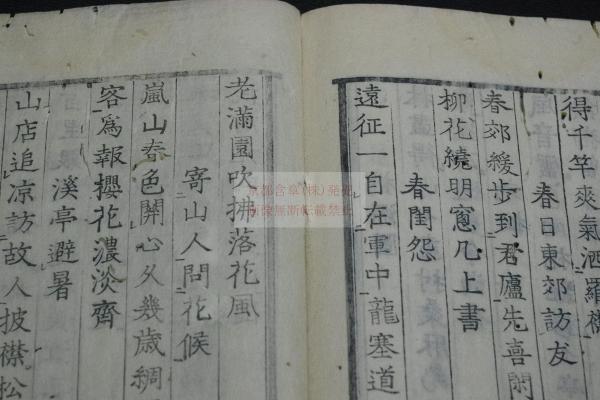 得千竿爽氣洒羅襟
春日東郊訪友
春郊緩步到君廬先喜閑
柳花繞明窓几上書
春閨怨
遠征一自在軍中龍塞道
老滿園吹拂落花風
寄山人問花候
嵐山春色關心久幾歲綢
客爲報櫻花濃淡齊
溪亭避暑
山店追凉訪故人披襟松
京都含章(株)発売
画像無断転載禁止